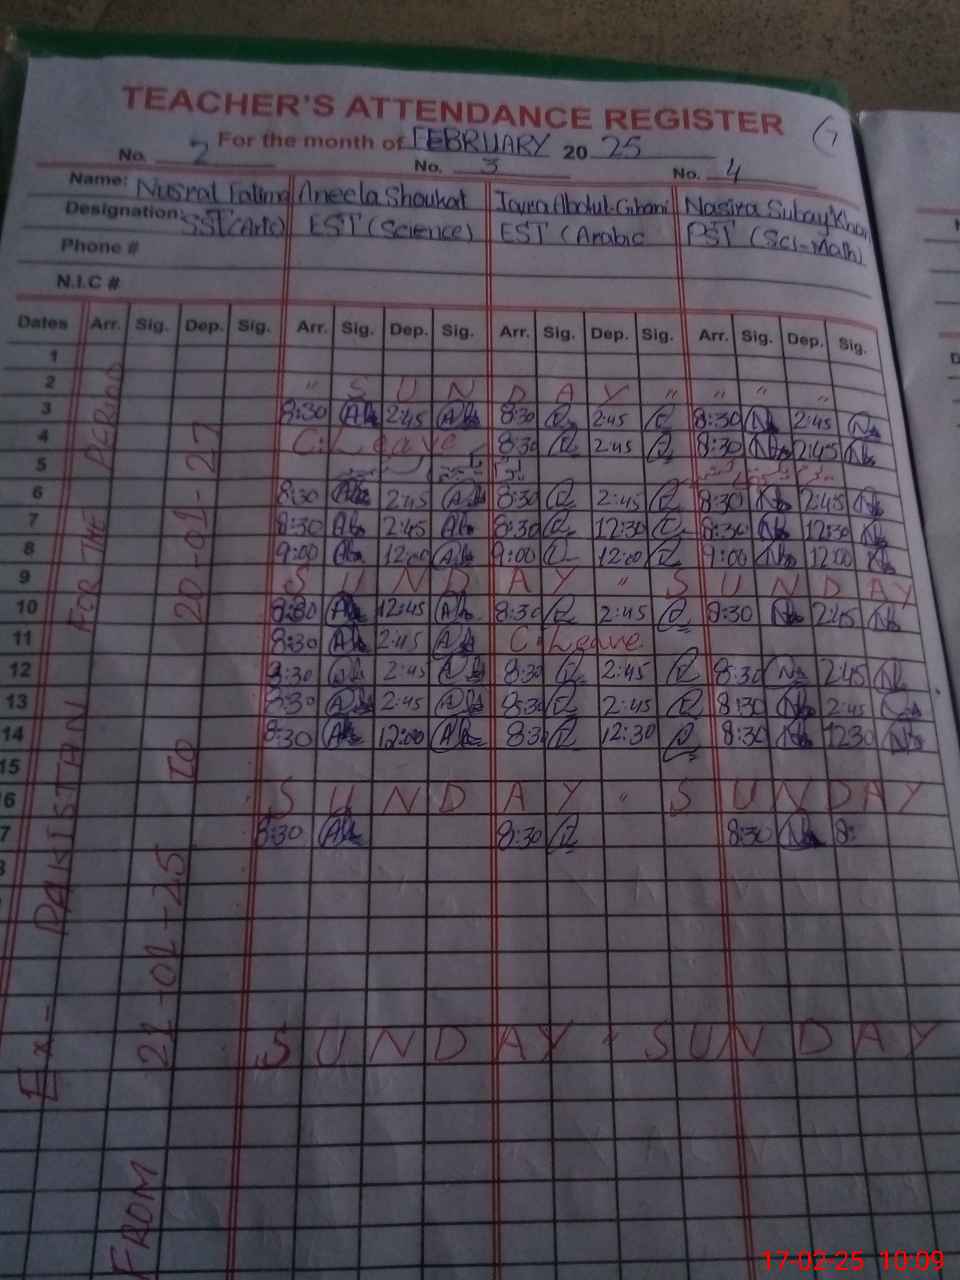 TEACHER'S ATTENDANCE REGISTER
For the month of FEBRUARY 2025
No. 2 No. 3 No. 4
Name: Nusrat Fatima Aneela Shoukat Abdul-Ghani Nasira Subay Khan
Designation: SST (Arts) EST (Science) EST (Arabic PST (Sci-Math)
Phone #
N.I.C #
Dates Arr. Sig. Dep. Sig. Arr. Sig. Dep. Sig. Arr. Sig. Dep. Sig. Arr. Sig. Dep. Sig.
1
2 " S U N D A Y " " " "
3 8:30 2:45 8:30 2:45 8:30 2:45
4 C. Leave 8:30 2:45 8:30 2:45
5
6 8:30 2:45 8:30 2:45 8:30 2:45
7 8:30 2:45 8:30 12:30 8:30 12:30
8 9:00 12:00 9:00 12:00 9:00 12:00
9 S U N D A Y " S U N D A Y
10 8:30 12:45 8:30 2:45 8:30 2:45
11 8:30 2:45 C. Leave
12 8:30 2:45 8:30 2:45 8:30 2:45
13 8:30 2:45 8:30 2:45 8:30 2:45
14 8:30 12:00 8:30 12:30 8:30 1230
15
6 S U N D A Y " S U N D A Y
7 8:30 8:30 8:30 8:
S U N D A Y " S U N D A Y
Ex- PAKISTAN FOR THE PERIOD
FROM 21-01-25 TO 20-01-27
17-02-25 10:09